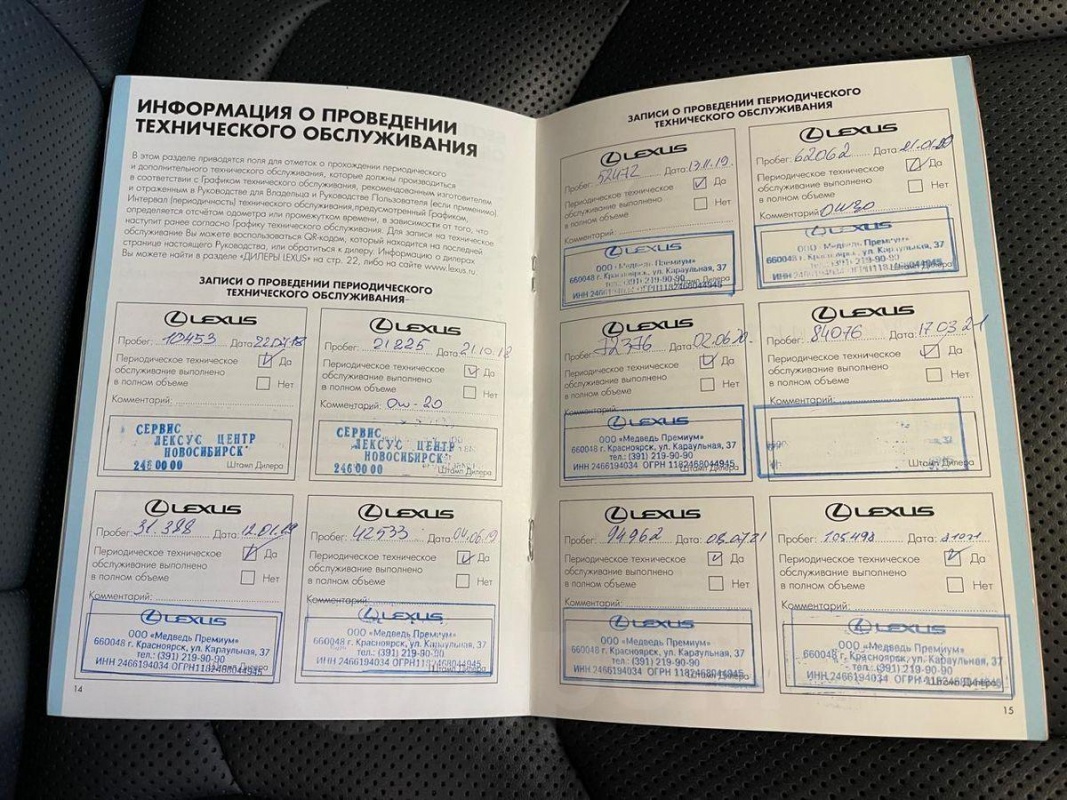 ИНФОРМАЦИЯ О ПРОВЕДЕНИИ
ТЕХНИЧЕСКОГО ОБСЛУЖИВАНИЯ
В этом разделе приводятся поля для отметок о прохождении периодического
и дополнительного технического обслуживания, которые должны производиться
в соответствии с Графиком технического обслуживания, рекомендованным изготовителем
и отраженным в Руководстве для Владельца и Руководстве Пользователя (если применимо)
Интервал (периодичность) технического обслуживания, предусмотренный Графиком,
определяется отсчётом одометра или промежутком времени, в зависимости от того, что
наступит ранее согласно Графику технического обслуживания. Для записи на техническое
обслуживание Вы можете воспользоваться QR-кодом, который находится на последней
странице настоящего Руководства, или обратиться к дилеру. Информацию о дилерах
Вы можете найти в разделе «ДИЛЕРЫ LEXUS» на стр. 22, либо на сайте www.lexus.ru.
ЗАПИСИ О ПРОВЕДЕНИИ ПЕРИОДИЧЕСКОГО
ТЕХНИЧЕСКОГО ОБСЛУЖИВАНИЯ
LEXUS
Пробег: 10453 Дата: 22.07.18
Периодическое техническое
обслуживание выполнено
в полном объеме
Да
Нет
Комментарий:
СЕРВИС
ЛЕКСУС ЦЕНТР
НОВОСИБИРСК
246 00 00
Штамп Дилера
LEXUS
Пробег: 21225 Дата: 21.10.18
Периодическое техническое
обслуживание выполнено
в полном объеме
Да
Нет
Комментарий: Ow-20
СЕРВИС
ЛЕКСУС ЦЕНТР
НОВОСИБИРСК
246 00 00
Штамп Дилера
LEXUS
Пробег: 31.388 Дата: 12.01.19
Периодическое техническое
обслуживание выполнено
в полном объеме
Да
Нет
Комментарий:
LEXUS
ООО «Медведь Премиум»
660048 г. Красноярск, ул. Караульная, 37
тел.: (391) 219-90-90
ИНН 2466194034 ОГРН 1182468044945
LEXUS
Пробег: 42533 Дата: 04.06.19
Периодическое техническое
обслуживание выполнено
в полном объеме
Да
Нет
Комментарий:
LEXUS
ООО «Медведь Премиум»
660048 г. Красноярск, ул. Караульная, 37
тел.: (391) 219-90-90
ИНН 2466194034 ОГРН 1182468044945
14
ЗАПИСИ О ПРОВЕДЕНИИ ПЕРИОДИЧЕСКОГО
ТЕХНИЧЕСКОГО ОБСЛУЖИВАНИЯ
LEXUS
Пробег: 52472 Дата: 13.11.19.
Периодическое техническое
обслуживание выполнено
в полном объеме
Да
Нет
Комментарий:
LEXUS
ООО «Медведь Премиум»
660048 г. Красноярск, ул. Караульная, 37
тел.: (391) 219-90-90
ИНН 2466194034 ОГРН 1182468044945
LEXUS
Пробег: 62062 Дата:
Периодическое техническое
обслуживание выполнено
в полном объеме
Да
Нет
Комментарий: OW20
LEXUS
ООО «Медведь Премиум»
660048 г. Красноярск, ул. Караульная, 37
тел.: (391) 219-90-90
ИНН 2466194034 ОГРН 1182468044945
LEXUS
Пробег: 72376 Дата: 02.06.20.
Периодическое техническое
обслуживание выполнено
в полном объеме
Да
Нет
Комментарий:
LEXUS
ООО «Медведь Премиум»
660048 г. Красноярск, ул. Караульная, 37
тел.: (391) 219-90-90
ИНН 2466194034 ОГРН 1182468044945
Штамп Дилера
LEXUS
Пробег: 84076 Дата: 17.03.21
Периодическое техническое
обслуживание выполнено
в полном объеме
Да
Нет
Комментарий:
Штамп Дилера
LEXUS
Пробег: 94962 Дата: 03.07.21
Периодическое техническое
обслуживание выполнено
в полном объеме
Да
Нет
Комментарий:
LEXUS
ООО «Медведь Премиум»
660048 г. Красноярск, ул. Караульная, 37
тел.: (391) 219-90-90
ИНН 2466194034 ОГРН 1182468044945
LEXUS
Пробег: 105498 Дата:
Периодическое техническое
обслуживание выполнено
в полном объеме
Да
Нет
Комментарий:
LEXUS
ООО «Медведь Премиум»
660048 г. Красноярск, ул. Караульная, 37
тел.: (391) 219-90-90
ИНН 2466194034 ОГРН 1182468044945
15